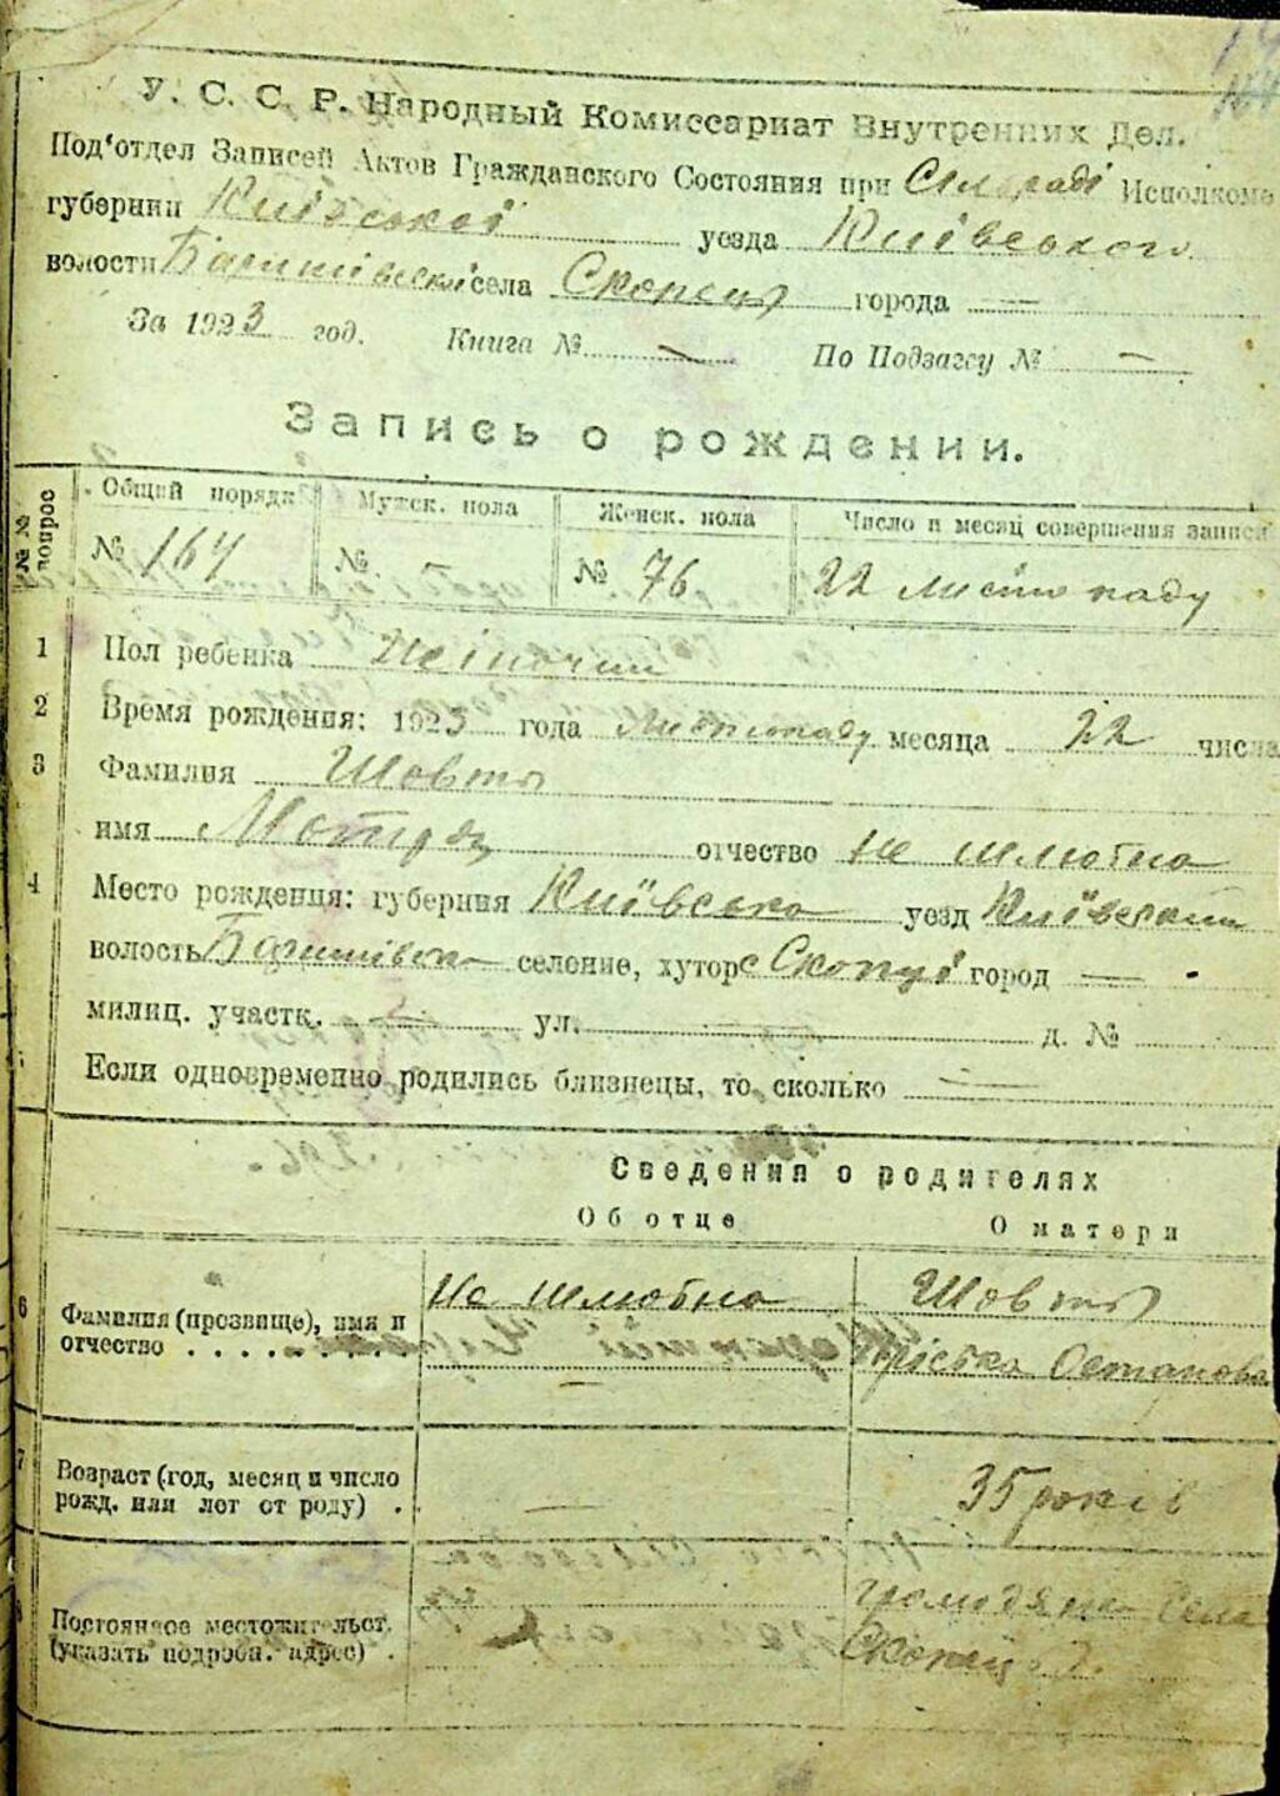 У. С. С. Р. Народный Комиссариат Внутренних Дел.
Под'отдел Записей Актов Гражданского Состояния при Сільраді Исполкоме
губернии Київської уезда Київського
волости Баришівської села Скопець города —
За 1923 год. Книга № — По Подзагсу № —
Запись о рождении.
№№ вопрос
Общий порядк Мужск. пола Женск. пола Число и месяц совершения записи
№ 164 № – № 76 22 листопаду
1 Пол ребенка Жіночий
2 Время рождения: 1923 года Листопаду месяца 22 числа
3 Фамилия Шовть
имя Мотря отчество не шлюбна
4 Место рождения: губерния Київська уезд Київський
волость Баришівськ селение, хутор с Скопці город —
милиц. участк. — ул. — д. №
Если одновременно родились близнецы, то, сколько —
Сведения о родителях
Об отце О матери
6 Фамилия (прозвище), имя и Не шлюбна Шовть
отчество . . . . . . . — Прістка Остапова
7 Возраст (год, месяц и число
рожд. или лет от роду) . — 35 років
Постоянное местожительст. громадянка села
(указать подробн. адрес) . Скопець